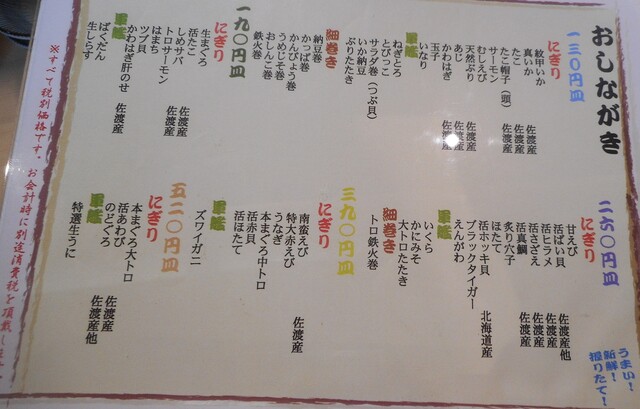 おしながき
一三〇円皿
にぎり
紋甲いか
真いか 佐渡産
たこ 佐渡産
たこ帽子(頭) 佐渡産
サーモン
むしえび
天然ぶり 佐渡産
あじ 佐渡産
かわはぎ 佐渡産
玉子
いなり
軍艦
ねぎとろ
とびっこ
サラダ巻(つぶ貝)
いか納豆
ぶりたたき
細巻き
納豆巻
かっぱ巻
かんぴょう巻
うめしそ巻
おしんこ巻
鉄火巻
一九〇円皿
にぎり
生まぐろ
活たこ 佐渡産
しめサバ 佐渡産
トロサーモン
はまち
ツブ貝
かわはぎ肝のせ 佐渡産
軍艦
ばくだん
生しらす
二六〇円皿
にぎり
甘えび 佐渡産他
活ばい貝 佐渡産
活ヒラメ 佐渡産
活さざえ 佐渡産
活真鯛 佐渡産
炙り穴子
ほたて
活ホッキ貝 北海道産
ブラックタイガー
えんがわ
軍艦
いくら
かにみそ
大トロたたき
細巻き
トロ鉄火巻
三九〇円皿
にぎり
南蛮えび 佐渡産
特大赤えび
うなぎ
本まぐろ中トロ
活赤貝
活ほたて
軍艦
ズワイガニ
五二〇円皿
にぎり
本まぐろ大トロ
活あわび 佐渡産
のどぐろ 佐渡産他
軍艦
特選生うに
うまい!
新鮮!
握りたて!
※すべて税別価格です。お会計時に別途消費税を頂戴し